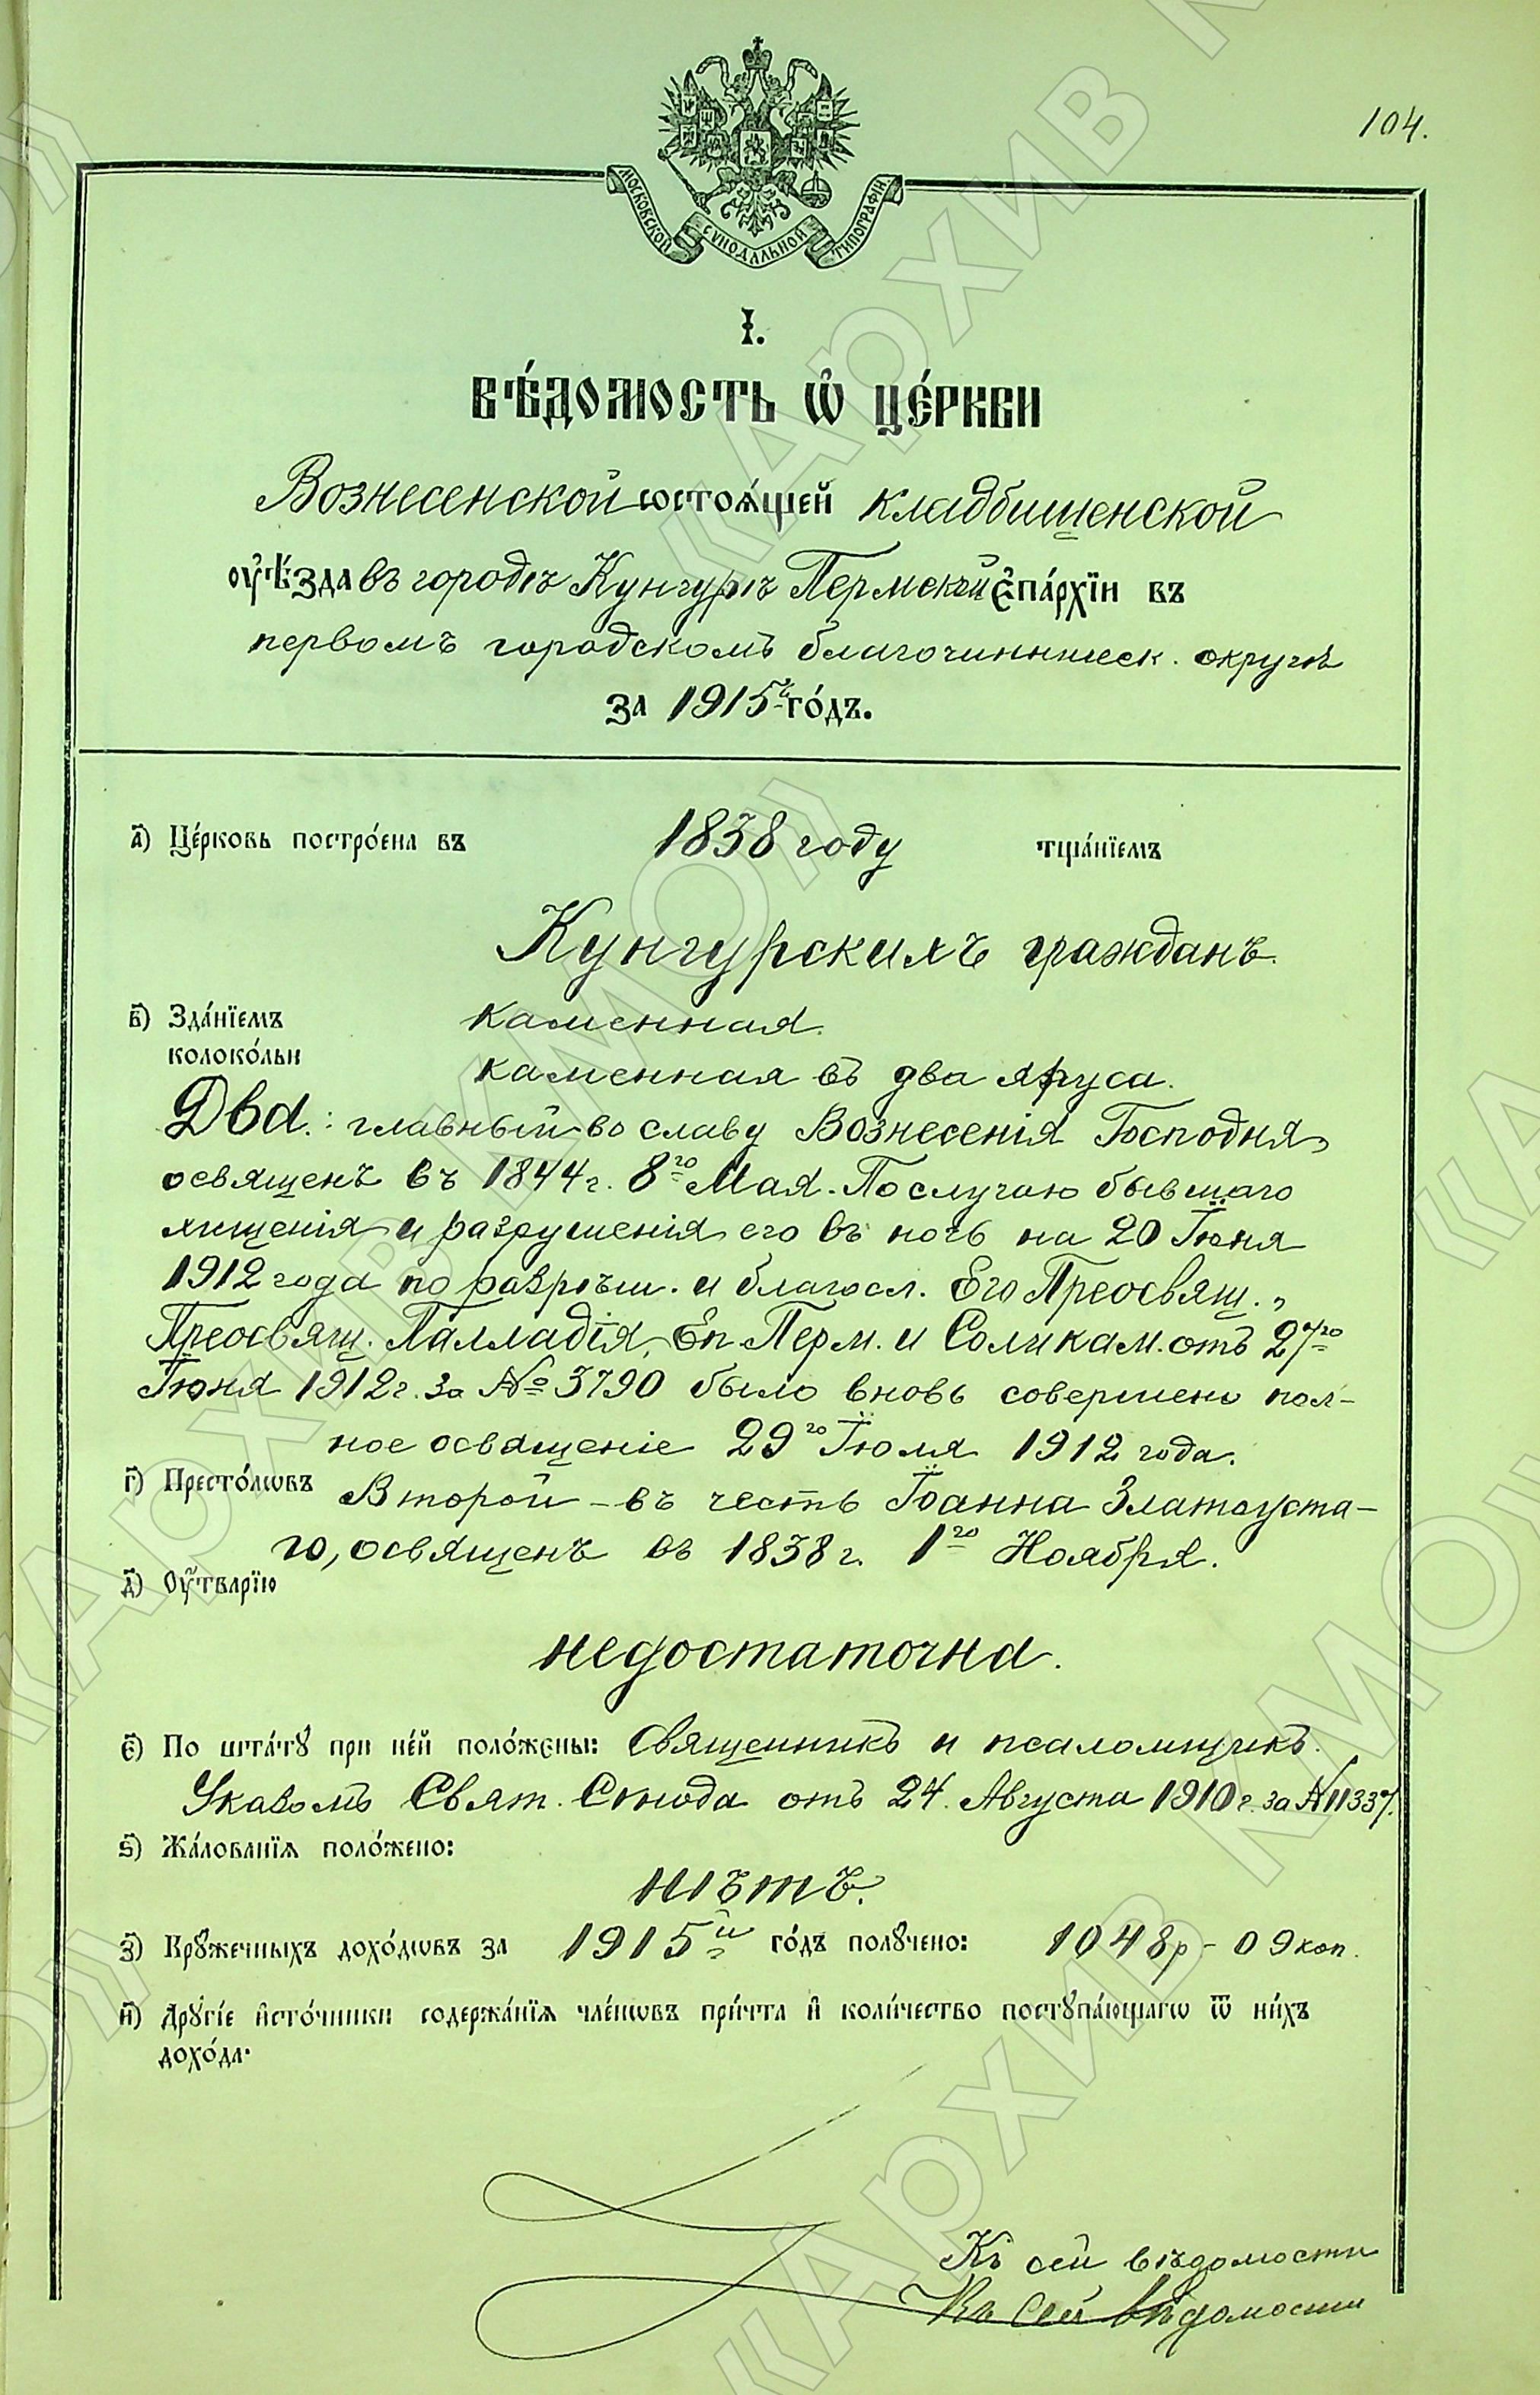 104.
МОСКОВСКОЙ СУНОДАЛЬНОЙ ТИПОГРАФІИ.
I.
ВѢ́ДОМОСТЬ Ѡ҆ ЦЕ́РКВИ
Вознесенской состоѧ́щей кладбищенской
ᲂу҆ѣ́зда въ городѣ Кунгурѣ Пермской є҆па́рхїи въ
первомъ городскомъ благочинническ. округѣ
за 1915й го́дъ.
а҃) Це́рковь постро́ена въ 1838 году тща́нїемъ
Кунгурскихъ гражданъ.
в҃) Зда́нїемъ каменная.
колоко́льи каменная въ два яруса.
Два: главный во славу Вознесенія Господня,
освященъ въ 1844 г. 8го Мая. По случаю бывшаго
хищенія и разрушенія его въ ночь на 20 Іюня
1912 года по разрѣш. и благосл. Его Преосвящ.,
Преосвящ. Палладія, Еп. Перм. и Соликам. отъ 27го
Іюня 1912 г. за № 3790 было вновь совершено пол-
ное освященіе 29го Іюля 1912 года.
г҃) Престо́лѡвъ Второй – въ честь Іоанна Златоуста-
го, освященъ въ 1838 г. 1го Ноября.
д҃) Оу҆́тварїю
недостаточна.
є҃) По шта́тꙋ при не́й поло́жены: Священникъ и псаломщикъ.
Указомъ Свят. Синода отъ 24. Августа 1910 г. за № 11337.
ѕ҃) Жа́лованїѧ поло́жено:
нѣтъ.
з҃) Крꙋ́жечныхъ дохо́дѡвъ за 1915й го́дъ полꙋ́чено: 1048 р – 09 коп.
и҃) Дрꙋгі́е и҆сто́чники содержа́нїѧ чле́нѡвъ при́чта и҆ коли́чество постꙋпа́ющагѡ ѿ ни́хъ
дохо́да.
Къ сей вѣдомости
Къ сей вѣдомости
«Архив КМО»